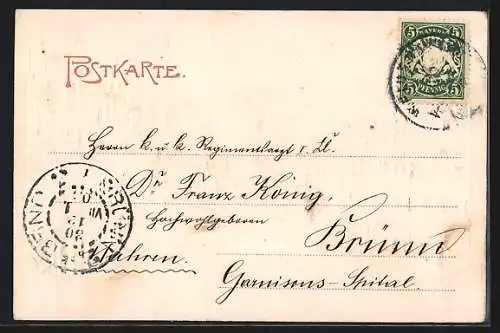 POSTKARTE.
5 BAYERN 5
5 PFENNIG 5
Herrn k. u. k. Regimentsarzt
Dr Franz König,
Hochwohlgeboren
Brünn
Garnisons-Spital.
Mähren.
BRÜNN